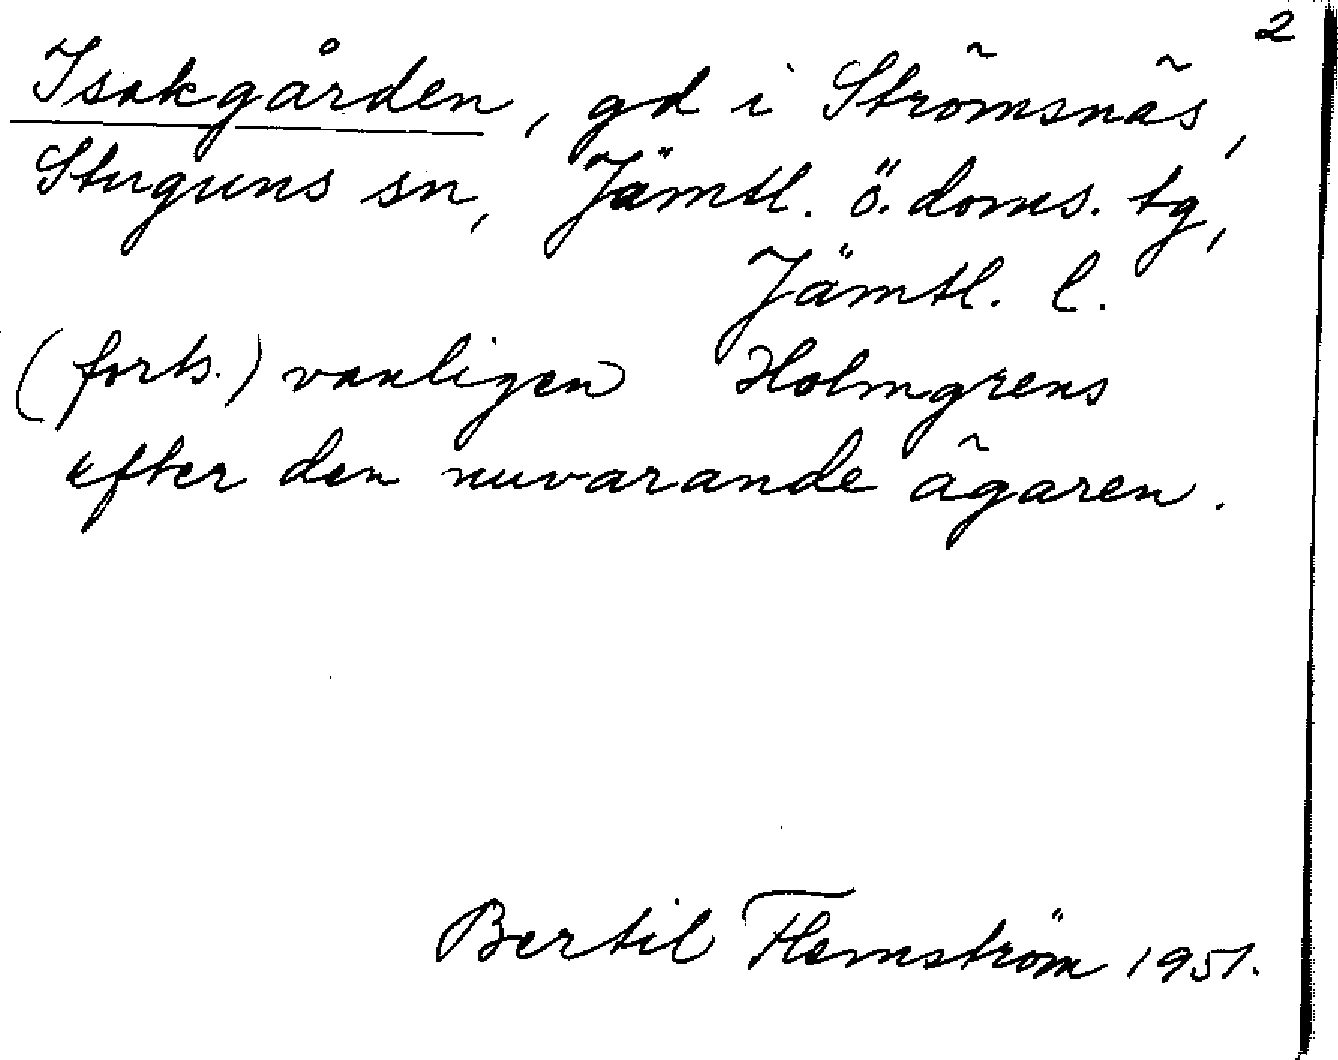 2
Isakgården, gd i Strömsnäs,
Stuguns sn, Jämtl. ö. doms. tg,
Jämtl. l.
(forts.) vanligen Holmgrens
efter den nuvarande ägaren.
Bertil Flemström 1951.